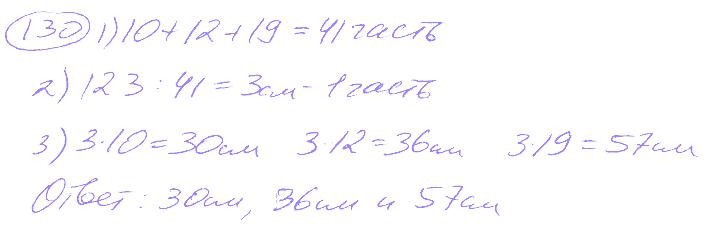 130 1) 10 + 12 + 19 = 41 часть
2) 123 : 41 = 3см - 1 часть
3) 3·10 = 30см 3·12 = 36см 3·19 = 57см
Ответ: 30см, 36см и 57см